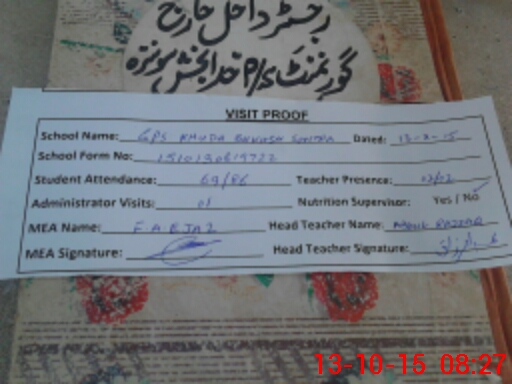 رجسٹر داخل خارج
گورنمنٹ P/S خدابخش سونترہ
VISIT PROOF
School Name: GPS KHUDA BUKHSH SONTRA Dated: 13-X-15
School Form No:
Student Attendance: 69/86 Teacher Presence: 02/02
Administrator Visits: 01 Nutrition Supervisor: Yes / No
MEA Name: F.A EJAZ Head Teacher Name: ABDUL RAZZAQ
MEA Signature: Head Teacher Signature:
13-10-15 08:27